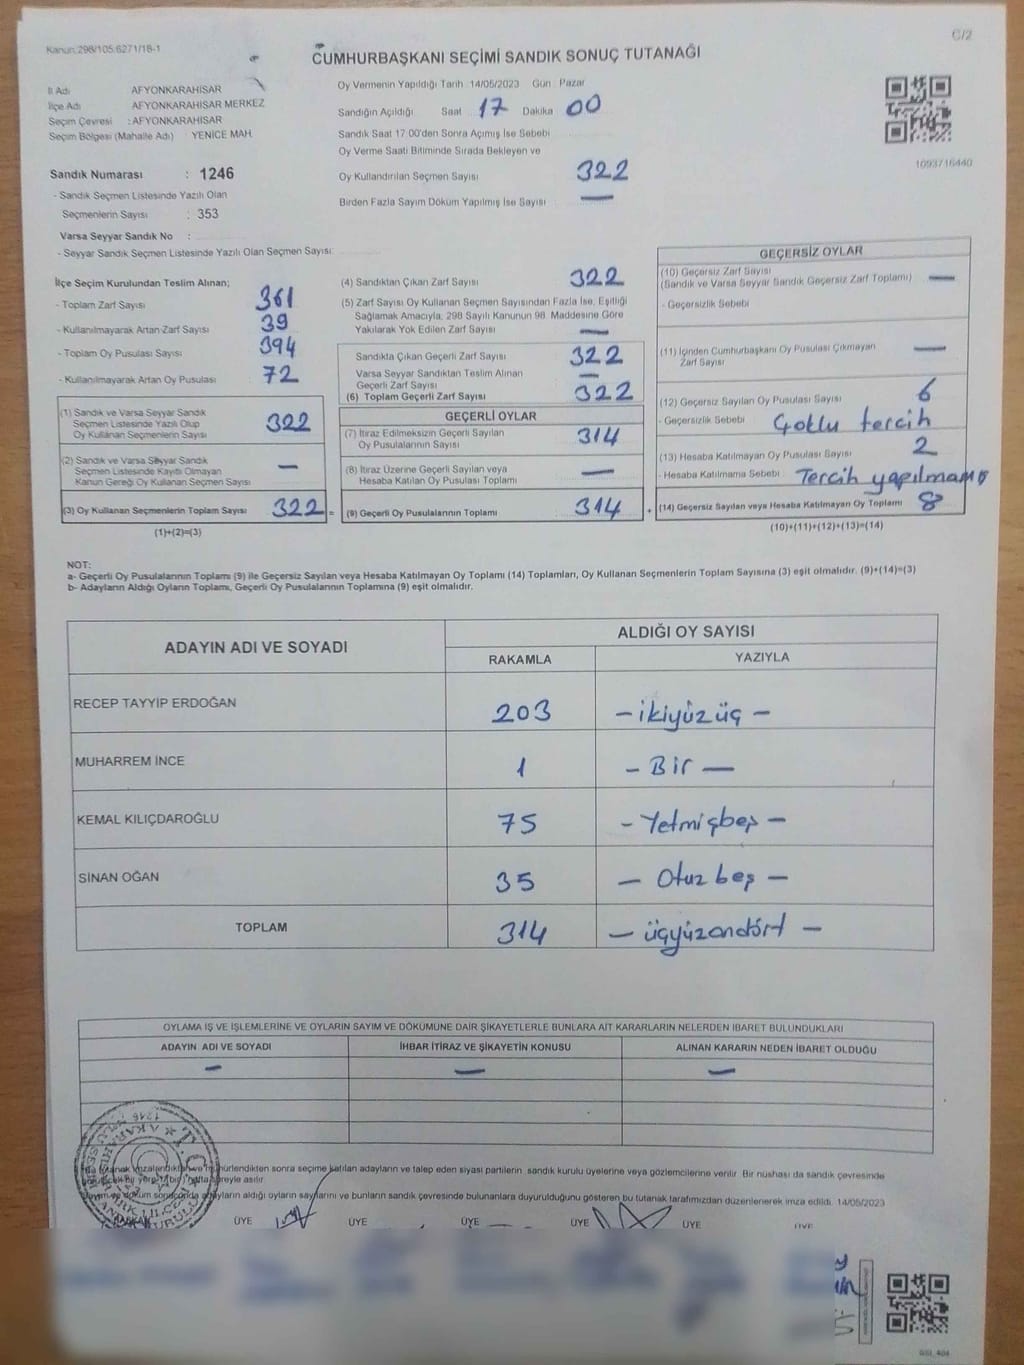 Kanun:298/105:6271/18-1
C/2
CUMHURBAŞKANI SEÇİMİ SANDIK SONUÇ TUTANAĞI
İl Adı AFYONKARAHİSAR
İlçe Adı AFYONKARAHİSAR MERKEZ
Seçim Çevresi : AFYONKARAHİSAR
Seçim Bölgesi (Mahalle Adı) YENİCE MAH.
Sandık Numarası : 1246
- Sandık Seçmen Listesinde Yazılı Olan
Seçmenlerin Sayısı : 353
Varsa Seyyar Sandık No :
- Seyyar Sandık Seçmen Listesinde Yazılı Olan Seçmen Sayısı:
Oy Vermenin Yapıldığı Tarih 14/05/2023 Gün : Pazar
Sandığın Açıldığı Saat 17 Dakika 00
Sandık Saat 17:00'den Sonra Açımış İse Sebebi
Oy Verme Saati Bitiminde Sırada Bekleyen ve
Oy Kullandırılan Seçmen Sayısı 322
Birden Fazla Sayım Döküm Yapılmış İse Sayısı —
1093716440
İlçe Seçim Kurulundan Teslim Alınan;
- Toplam Zarf Sayısı 361
- Kullanılmayarak Artan Zarf Sayısı 39
- Toplam Oy Pusulası Sayısı 394
- Kullanılmayarak Artan Oy Pusulası 72
(1) Sandık ve Varsa Seyyar Sandık
Seçmen Listesinde Yazılı Olup
Oy Kullanan Seçmenlerin Sayısı 322
(2) Sandık ve Varsa Seyyar Sandık
Seçmen Listesinde Kayıtlı Olmayan
Kanun Gereği Oy Kullanan Seçmen Sayısı —
(3) Oy Kullanan Seçmenlerin Toplam Sayısı 322 =
(1)+(2)=(3)
(4) Sandıktan Çıkan Zarf Sayısı 322
(5) Zarf Sayısı Oy Kullanan Seçmen Sayısından Fazla İse, Eşitliği
Sağlamak Amacıyla, 298 Sayılı Kanunun 98. Maddesine Göre
Yakılarak Yok Edilen Zarf Sayısı —
Sandıkta Çıkan Geçerli Zarf Sayısı 322
Varsa Seyyar Sandıktan Teslim Alınan
Geçerli Zarf Sayısı —
(6) Toplam Geçerli Zarf Sayısı 322
GEÇERLİ OYLAR
(7) İtiraz Edilmeksizin Geçerli Sayılan
Oy Pusulalarının Sayısı 314
(8) İtiraz Üzerine Geçerli Sayılan veya
Hesaba Katılan Oy Pusulası Toplamı —
(9) Geçerli Oy Pusulalarının Toplamı 314 +
GEÇERSİZ OYLAR
(10) Geçersiz Zarf Sayısı
(Sandık ve Varsa Seyyar Sandık Geçersiz Zarf Toplamı) —
- Geçersizlik Sebebi
(11) İçinden Cumhurbaşkanı Oy Pusulası Çıkmayan
Zarf Sayısı —
(12) Geçersiz Sayılan Oy Pusulası Sayısı 6
- Geçersizlik Sebebi Çoklu tercih
(13) Hesaba Katılmayan Oy Pusulası Sayısı 2
- Hesaba Katılmama Sebebi Tercih yapılmamış
(14) Geçersiz Sayılan veya Hesaba Katılmayan Oy Toplamı 8
(10)+(11)+(12)+(13)=(14)
NOT:
a- Geçerli Oy Pusulalarının Toplamı (9) ile Geçersiz Sayılan veya Hesaba Katılmayan Oy Toplamı (14) Toplamları, Oy Kullanan Seçmenlerin Toplam Sayısına (3) eşit olmalıdır. (9)+(14)=(3)
b- Adayların Aldığı Oyların Toplamı, Geçerli Oy Pusulalarının Toplamına (9) eşit olmalıdır.
ADAYIN ADI VE SOYADI ALDIĞI OY SAYISI
RAKAMLA YAZIYLA
RECEP TAYYİP ERDOĞAN 203 – ikiyüzüç –
MUHARREM İNCE 1 – Bir —
KEMAL KILIÇDAROĞLU 75 – Yetmişbeş –
SİNAN OĞAN 35 – Otuz beş –
TOPLAM 314 – üçyüzondört –
OYLAMA İŞ VE İŞLEMLERİNE VE OYLARIN SAYIM VE DÖKÜMÜNE DAİR ŞİKAYETLERLE BUNLARA AİT KARARLARIN NELERDEN İBARET BULUNDUKLARI
ADAYIN ADI VE SOYADI İHBAR İTİRAZ VE ŞİKAYETİN KONUSU ALINAN KARARIN NEDEN İBARET OLDUĞU
— — —
sonra seçime katılan adayların ve talep eden siyasi partilerin, sandık kurulu üyelerine veya gözlemcilerine verilir. Bir nüshası da sandık çevresinde
asılır.
adayların aldığı oyların sayılarını ve bunların sandık çevresinde bulunanlara duyurulduğunu gösteren bu tutanak tarafımızdan düzenlenerek imza edildi. 14/05/2023
ÜYE ÜYE ÜYE ÜYE ÜYE ÜYE